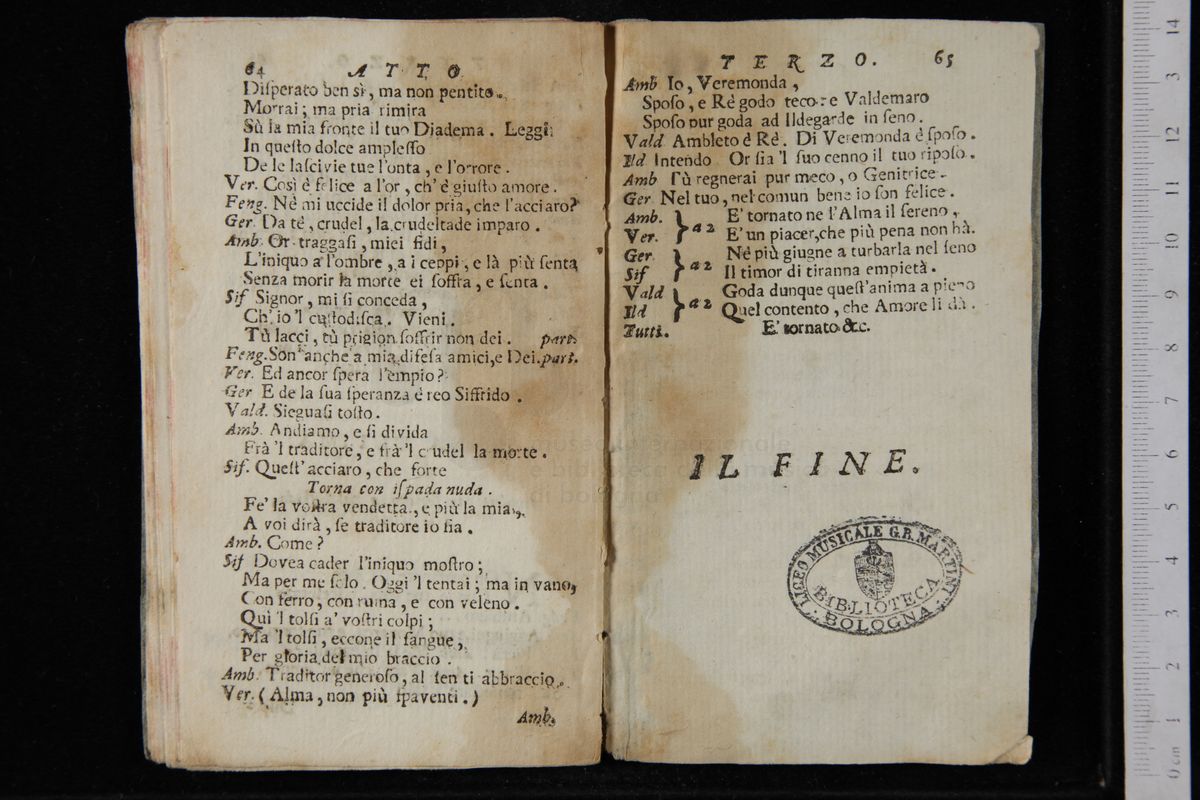 64 ATTO
Diſperato ben sì, ma non pentito.
Morrai; ma pria rimira
Sù la mia fronte il tuo Diadema. Leggi;
In queſto dolce ampleſſo
De le laſcivie tue l'onta, e l'orrore.
Ver. Così è felice a l'or, ch'è giuſto amore.
Feng. Nè mi uccide il dolor pria, che l'acciaro?
Ger. Da tè, crudel, la crudeltade imparo.
Amb. Or traggaſi, miei fidi,
L'iniquo a l'ombre, a i ceppi, e là più ſenta
Senza morir la morte ei ſoffra, e ſenta.
Sif Signor, mi ſi conceda,
Ch'io 'l cuſtodiſca. Vieni.
Tù lacci, tù prigion ſoffrir non dei. part.
Feng. Son anche a mia difeſa amici, e Dei. part.
Ver. Ed ancor ſpera l'empio?
Ger E de la ſua ſperanza é reo Siffrido.
Vald. Sieguaſi toſto.
Amb. Andiamo, e ſi divida
Frà 'l traditore, e frà 'l crudel la morte.
Sif. Queſt' acciaro, che forte
Torna con iſpada nuda.
Fe' la voſtra vendetta, e più la mia,
A voi dirà, ſe traditore io ſia.
Amb. Come?
Sif Dovea cader l'iniquo moſtro;
Ma per me ſolo. Oggi 'l tentai; ma in vano,
Con ferro, con ruina, e con veleno.
Quì 'l tolſi a' voſtri colpi;
Ma 'l tolſi, eccone il ſangue,
Per gloria del mio braccio.
Amb. Traditor generoſo, al ſen ti abbraccio.
Ver. (Alma, non più ſpaventi.)
Amb.
TERZO. 65
Amb Io, Veremonda,
Spoſo, e Rè godo teco: e Valdemaro
Spoſo pur goda ad Ildegarde in ſeno.
Vald Ambleto è Rè. Di Veremonda è ſpoſo.
Ild Intendo Or ſia 'l ſuo cenno il tuo ripoſo.
Amb Tù regnerai pur meco, o Genitrice.
Ger Nel tuo, nel comun bene io ſon felice.
Amb. } a 2 E' tornato ne l'Alma il ſereno,
Ver. E' un piacer, che più pena non hà.
Ger } a 2 Nè più giugne a turbarla nel ſeno
Sif Il timor di tiranna empietà.
Vald } a 2 Goda dunque queſt'anima a pieno
Ild Quel contento, che Amore li dà.
Tutti. E' tornato &c.
IL FINE.
LICEO MUSICALE G.B. MARTINI
BIBLIOTECA
BOLOGNA
museo internazionale
e biblioteca della musica
di bologna
0 cm 1 2 3 4 5 6 7 8 9 10 11 12 13 14